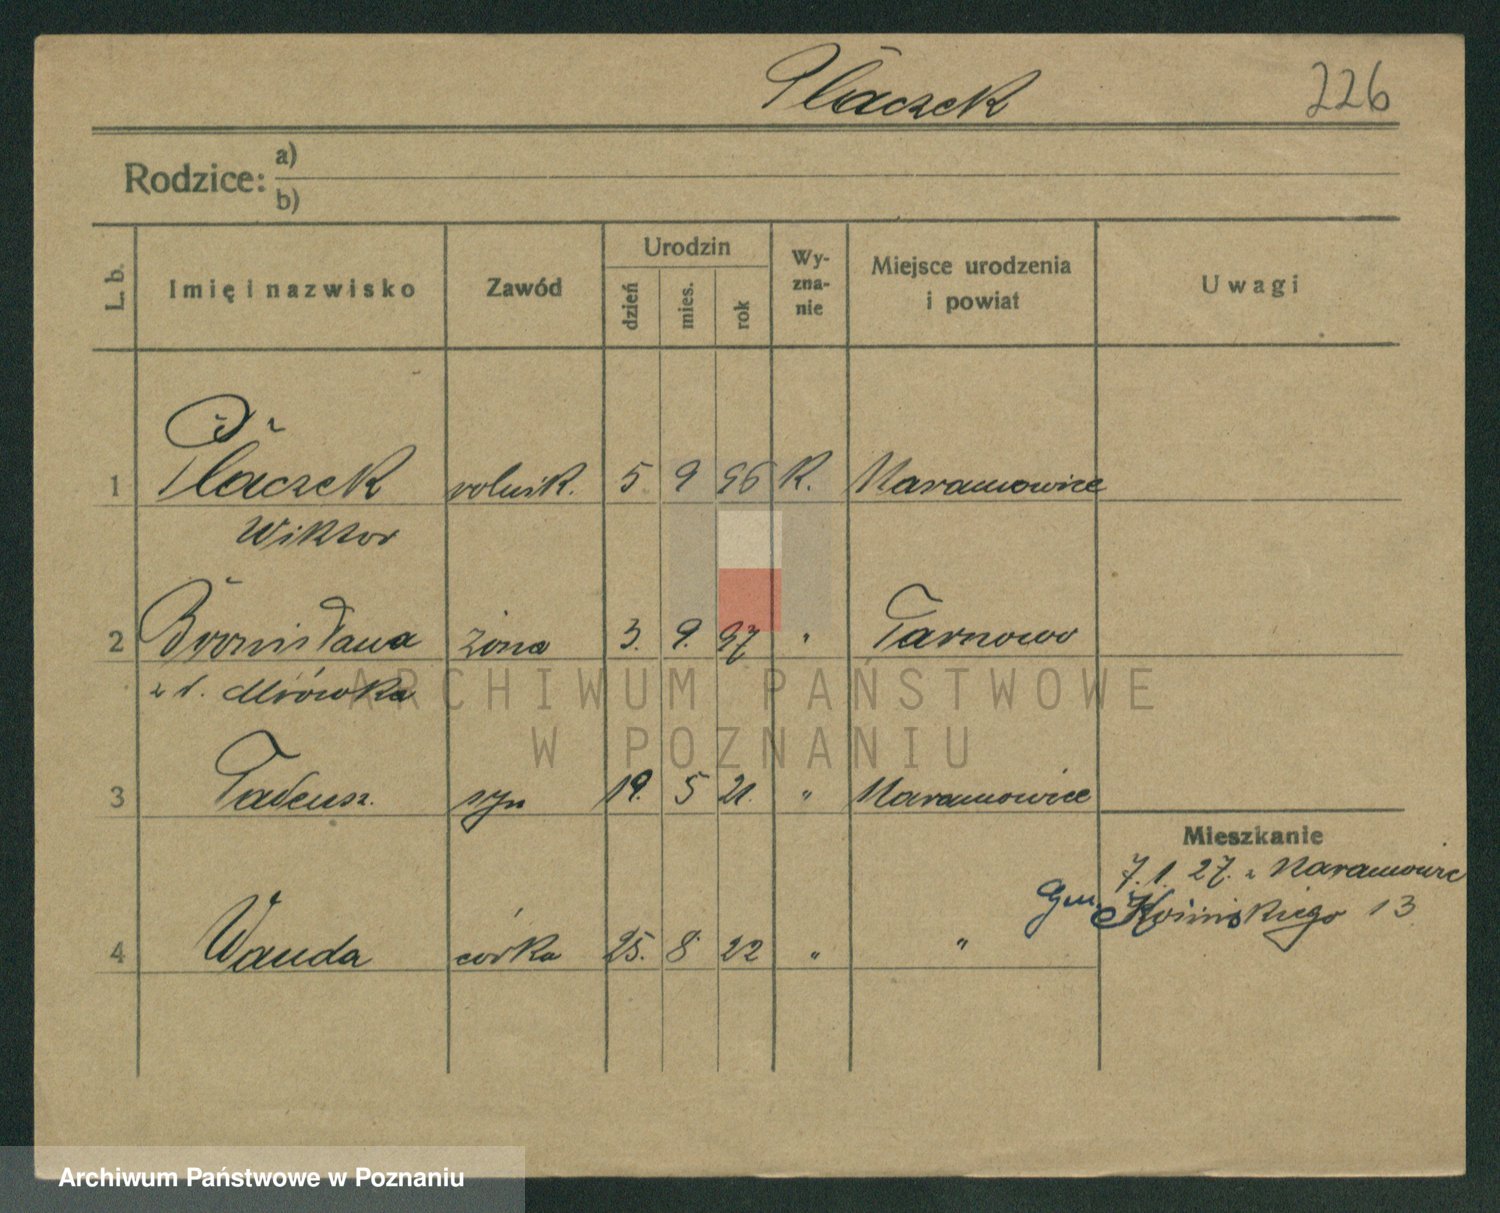 Placzek 226
Rodzice: a)
b)
L. b. Imię i nazwisko Zawód Urodzin dzień mies. rok Wy-zna-nie Miejsce urodzenia i powiat Uwagi
1 Placzek rolnik. 5 9 96 K. Naramowice
Wiktor
2 Bronisława żona 3. 9. 97 " Tarnowo
z d. Mrówka
ARCHIWUM PAŃSTWOWE
W POZNANIU
3 Tadeusz. syn 19. 5 21. " Naramowice
Mieszkanie
7.1.27. z Naramowic
Gen. Kosińskiego 13
4 Wanda córka 25. 8 22 " "
Archiwum Państwowe w Poznaniu